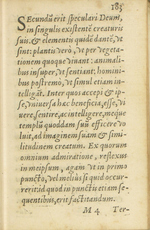 185
Secundũ erit speculari Deum,
in singulis existentẽ creaturis
suis. & elementis quidẽ dantẽ, ut
sint: plantis verò, ut per vegeta-
tionem quoque vivant: animali
bus insuper, ut sentiant: homini-
bus postremò, ut simul etiam in-
telligant. Inter quos accepi & ip-
se, universa hæc beneficia, esse, vi-
vere, sentire, ac intelligere, meque
templũ quoddam suũ efficere vo
luit, ad imaginem suam & simi-
litudinem creatum. Ex quorum
omnium admiratione, reflexus
in meipsum, agam ut in primo
puncto, vel meliùs si quid occur-
rerit: id quod in punctis etiam se-
quentibus, erit factitandum.
M 4 Ter-